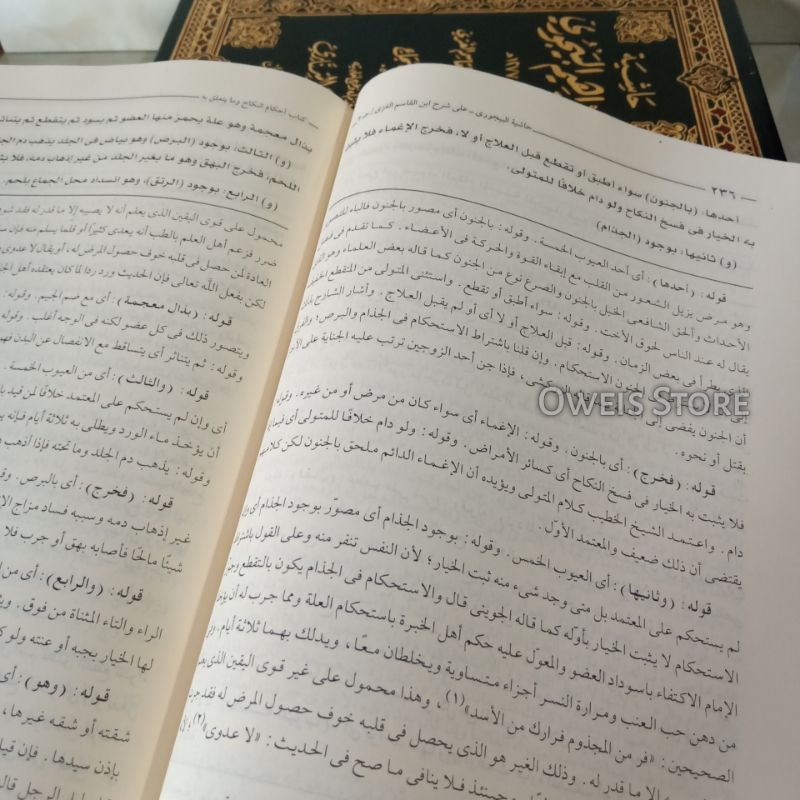 حاشية
حاشية البيجورى - على شرح ابن القاسم الغزى
— ٢٣٦ —
أحدها، (بالجنون) سواء أطبق أو تقطع قبل العلاج أو لا، فخرج الإغماء فلا يثبت
به الخيار فى فسخ النكاح ولو دام خلافًا للمتولى.
(و) ثانيها، بوجود (الجذام)
قوله: (أحدها): أى أحد العيوب الخمسة. وقوله: بالجنون أى مصور بالجنون فالباء للتصوير
وهو مرض يزيل الشعور من القلب مع إبقاء القوة والحركة فى الأعضاء. كما تقدم فى
الأحداث وألحق الشافعى الخبل بالجنون والصرع نوع من الجنون كما قاله بعض العلماء وهو
يقال له عند الناس لحوق الأخت. وقوله: سواء أطبق أو تقطع. واستثنى المتولى من المتقطع
الذى يطرأ فى بعض الزمان. وقوله: قبل العلاج أو لا أى أو لم يقبل العلاج. وأشار الشارح
الجنون الاستحكام. وإن قلنا باشتراط الاستحكام فى الجذام والبرص؛
أن الجنون يفضى إلى فإذا جن أحد الزوجين ترتب عليه الجناية على
بقتل أو نحوه.
قوله: (فخرج): أى بالجنون. وقوله: الإغماء أى سواء كان من مرض أو من غيره. وقوله
فلا يثبت به الخيار فى فسخ النكاح أى كسائر الأمراض. وقوله: ولو دام خلافًا للمتولى أى
دام. واعتمد الشيخ الخطيب كلام المتولى ويؤيده أن الإغماء الدائم ملحق بالجنون لكن
يقتضى أن ذلك ضعيف والمعتمد الأول.
قوله: (وثانيها): أى العيوب الخمس. وقوله: بوجود الجذام أى مصوّر بوجود الجذام أى
لم يستحكم على المعتمد بل متى وجد شىء منه ثبت الخيار؛ لأن النفس تنفر منه وعلى القول باشتراط
الاستحكام لا يثبت الخيار بأوّله كما قاله الجوينى قال والاستحكام فى الجذام يكون بالتقطع
الإمام الاكتفاء باسوداد العضو والمعوّل عليه حكم أهل الخبرة باستحكام العلة ومما جرب له أن
من دهن حب العنب ومرارة النسر أجزاء متساوية ويخلطان معًا، ويدلك بهما ثلاثة أيام.
الصحيحين: «فر من المجذوم فرارك من الأسد»(١)، وهذا محمول على غير قوى اليقين الذى
إلا ما قدر له. وذلك الغير هو الذى يحصل فى قلبه خوف حصول المرض له فقد
وحينئذ فلا ينافى ما صح فى الحديث: «لا عدوى»(٢)
— كتاب أحكام النكاح وما يتعلق به
بذال معجمة وهو علة يحمر منها العضو ثم يسود ثم يتقطع ثم يتناثر
(و) الثالث، بوجود (البرص) وهو بياض فى الجلد يذهب دم الجلد
اللحم، فخرج البهق وهو ما يغير الجلد من غير إذهاب دمه، فلا
(و) الرابع، بوجود (الرتق)، وهو انسداد محل الجماع بلحم.
محمول على قوى اليقين الذى يعلم أنه لا يصيبه إلا ما قدر له
ضرر فزعم أهل العلم بالطب أنه يعدى كثيرًا أو قلما يسلم منه
العادة لمن حصل فى قلبه خوف حصول المرض له، أو يقال لا
لكن بفعل الله تعالى فإن الحديث ورد ردا لما كان يعتقده أهل
قوله: (بذال معجمة): أى مع ضم الجيم. وقوله:
ويتصور ذلك فى كل عضو لكنه فى الوجه أغلب. وقوله
وقوله: ثم يتناثر أى يتساقط مع الانفصال عن البدن
قوله: (والثالث): أى من العيوب الخمسة.
أى وإن لم يستحكم على المعتمد خلافًا لمن قيد
أن يؤخذ ماء الورد ويطلى به ثلاثة أيام فإنه
وقوله: يذهب دم الجلد وما تحته فإذا
قوله: (فخرج): أى بالبرص.
غير إذهاب دمه وسببه فساد مزاج
شيئًا مالحًا فأصابه بهق أو جرب فلا
قوله: (والرابع): أى من
الراء والتاء المثناة من فوق.
لها الخيار بجبه أو عنته ولو
قوله: (وهو): أى
شقته أو شقه غيرها،
بإذن سيدها. فإن
الرجل قال
OWEIS STORE